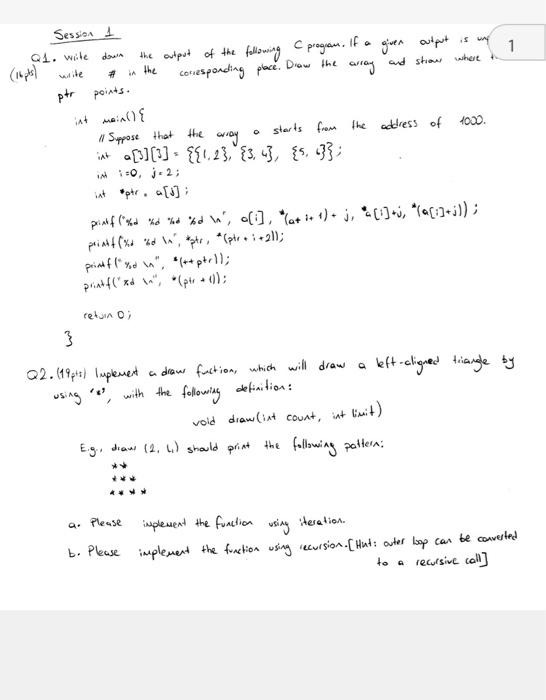 Session 1
Q1. Write down the output of the following C program. If a given output is un
(16pts) write # in the corresponding place. Draw the array and show where t
ptr points.
int main(){
// Suppose that the array a starts from the address of 1000.
int a[3][3] = {{1,2}, {3,4}, {5,6}};
int i=0, j=2;
int *ptr = a[j];
printf("%d %d %d %d \n", a[i], *(a+i+1)+j, *a[i]+j, *(a[i]+j));
printf("%d %d \n", *ptr, *(ptr+i+2));
printf("%d \n", *(++ptr));
printf("%d \n", *(ptr+1));
return 0;
}
Q2. (19pts) Implement a draw fuction, which will draw a left-aligned triangle by
using '*', with the following definition:
void draw(int count, int limit)
E.g., draw (2, 4) should print the following pattern:
**
***
****
a. Please implement the function using iteration.
b. Please implement the function using recursion. [Hint: outer loop can be converted
to a recursive call]
1